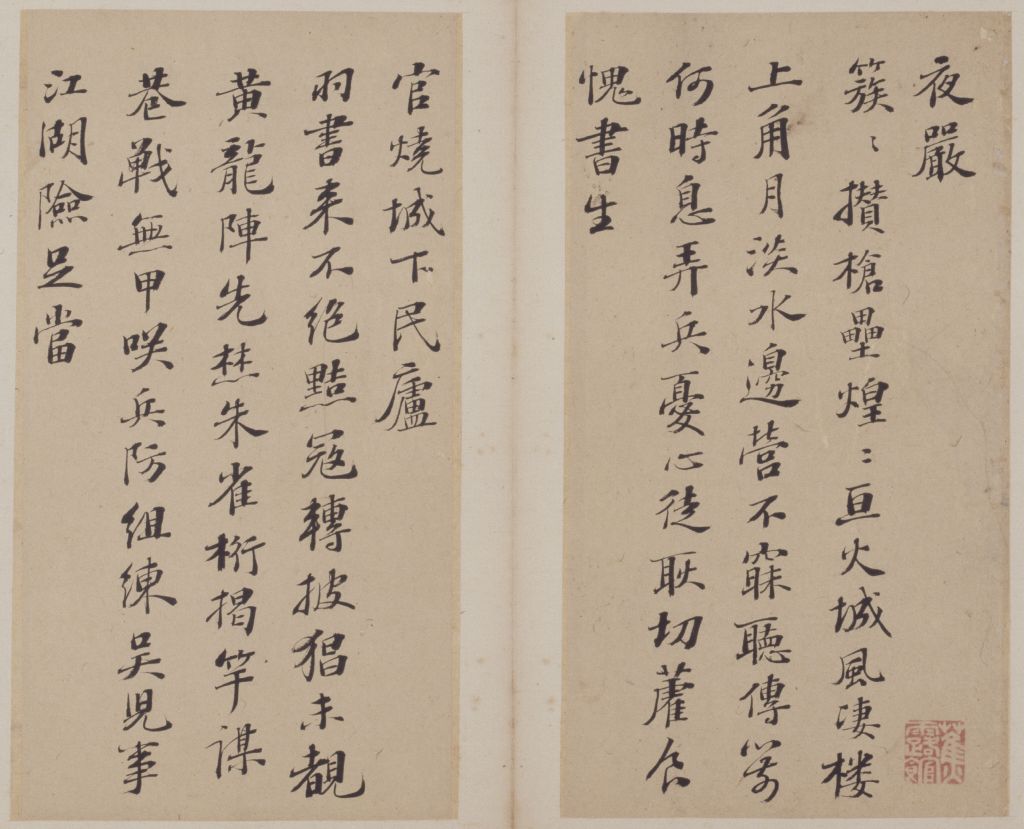 夜嚴
簇〻攢槍壘煌〻亘火城風淒樓
上角月淡水邊營不寐聽傳箭
何時息弄兵憂心徒耿切藿食
愧書生
官燒城下民廬
羽書来不絶黠冦轉披猖未覩
黃龍陣先焚朱雀桁揭竿謀
巷戰無甲咲兵防組練吳児事
江湖險足當